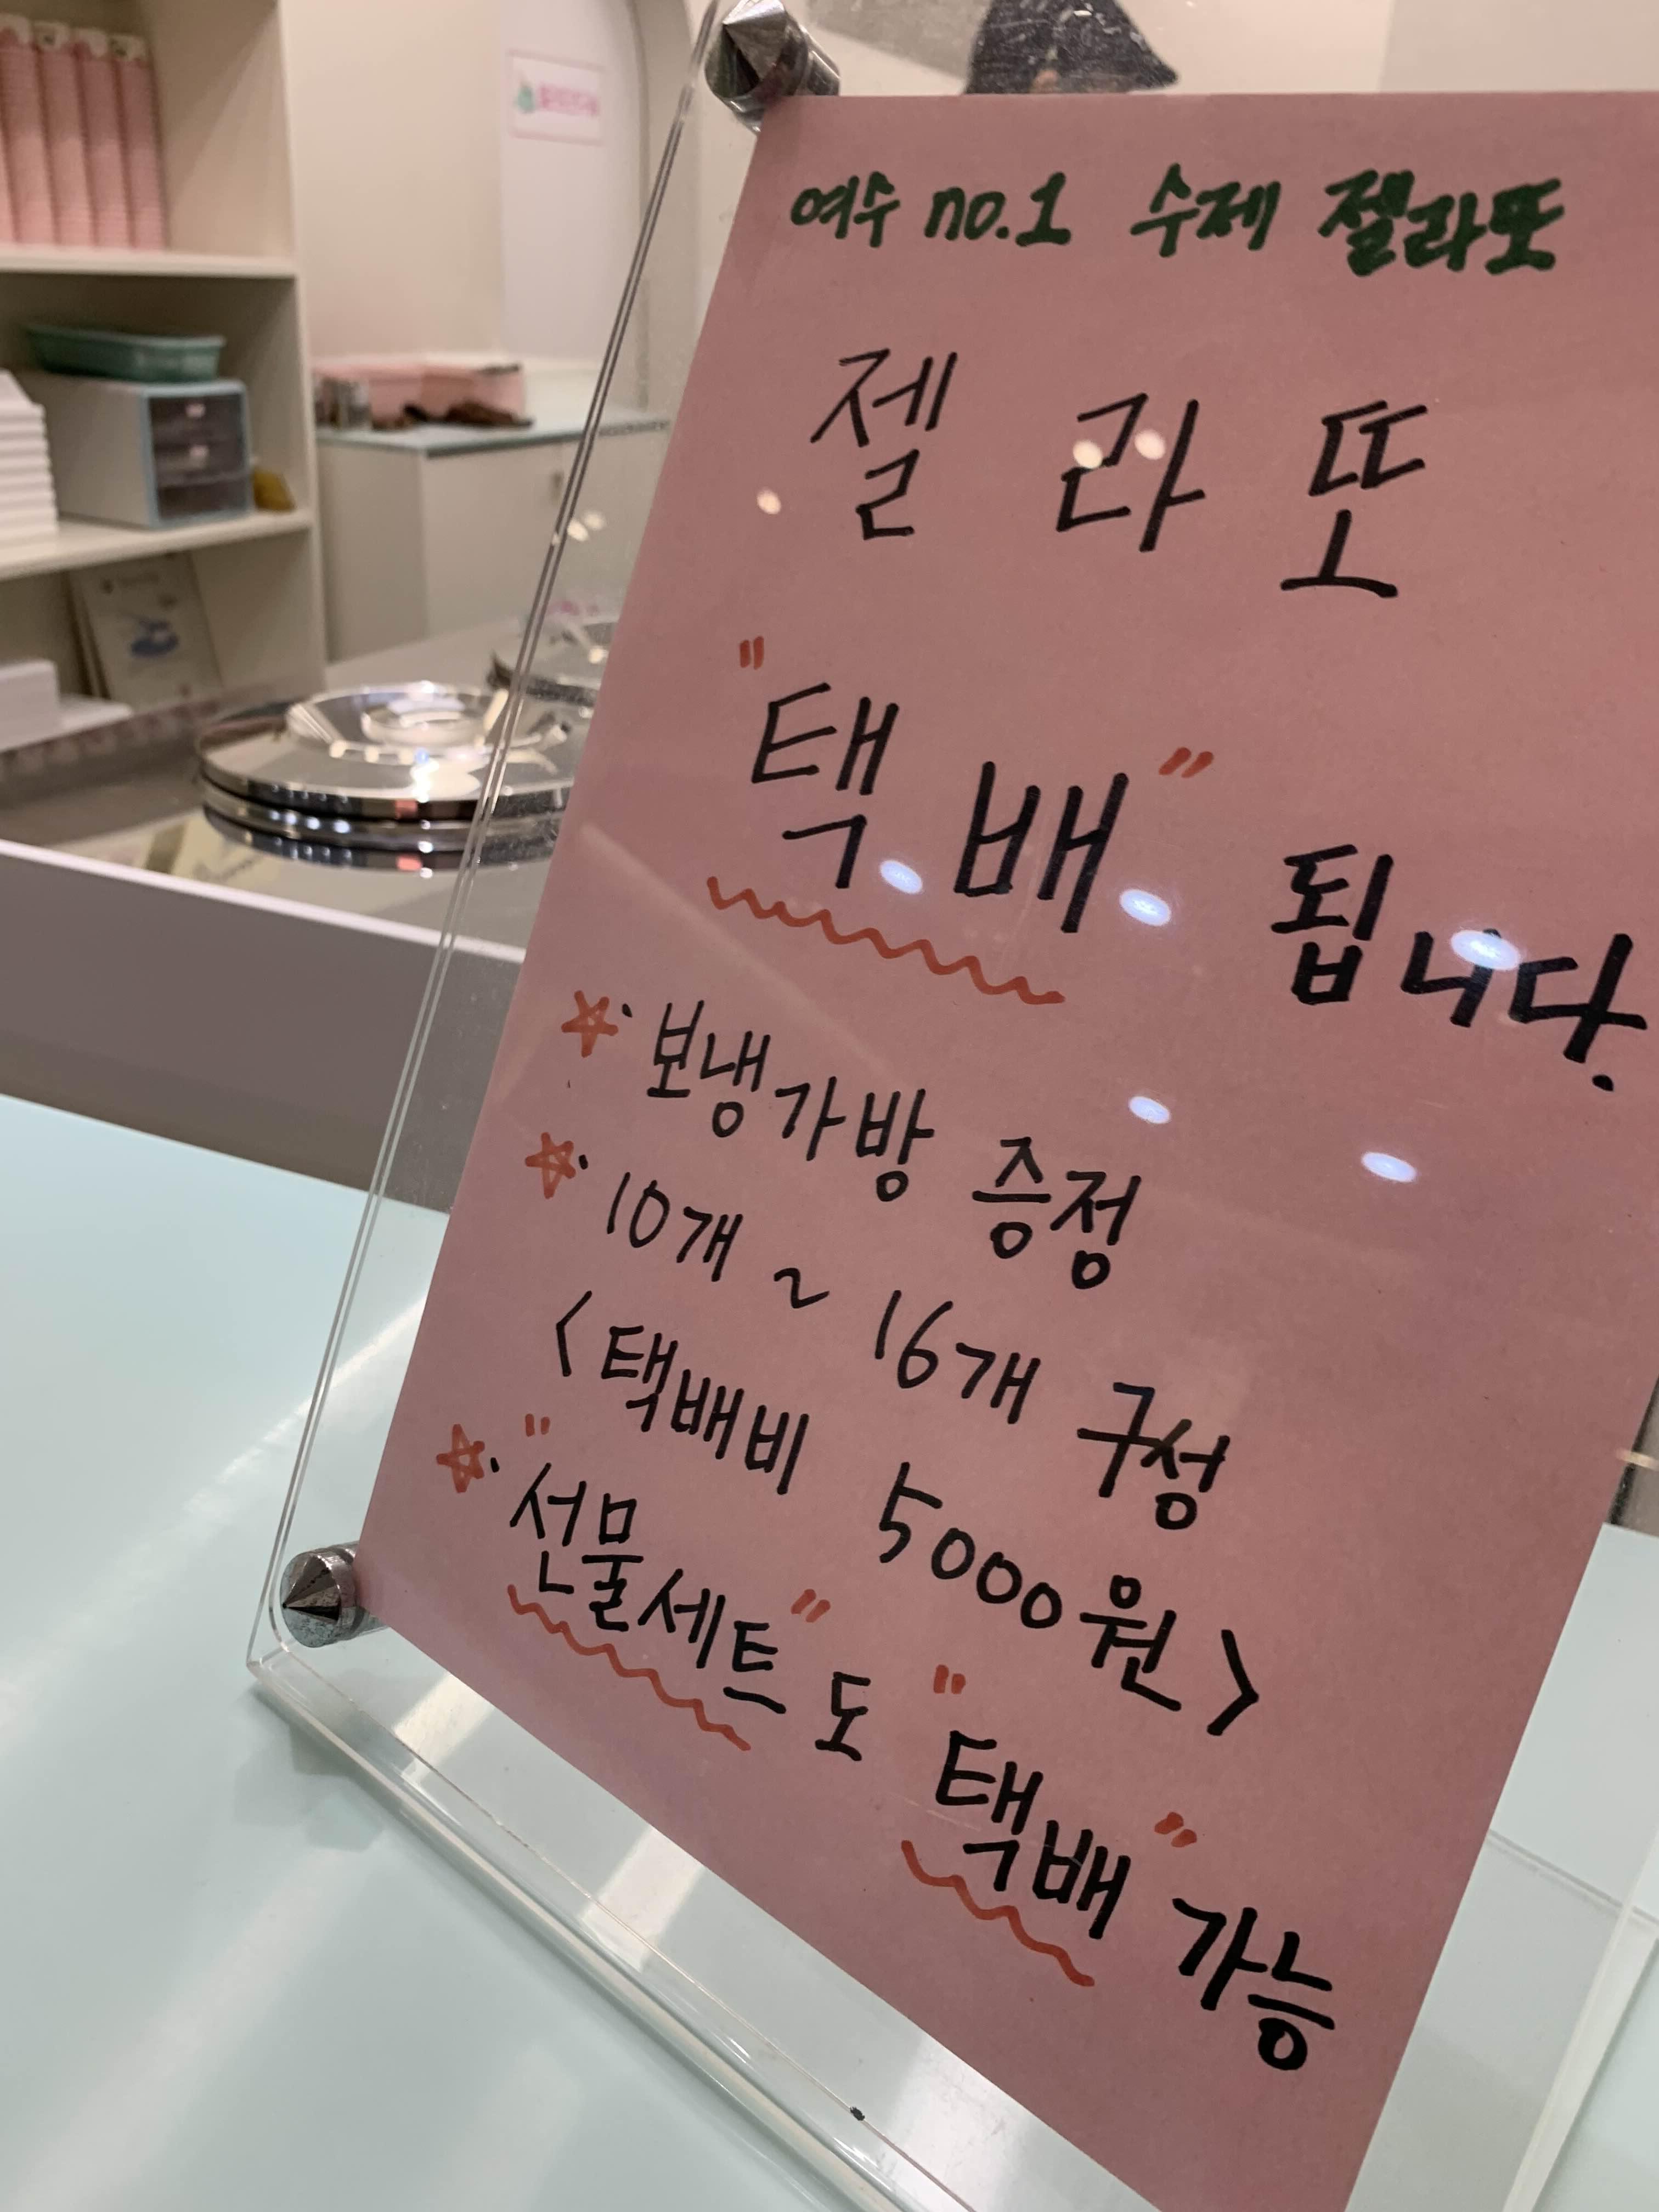 여수 no.1 수제 젤라또
젤라또
"택배" 됩니다.
☆· 보냉가방 증정
☆· 10개 ~ 16개 구성
<택배비 5000원>
☆· "선물세트"도 "택배" 가능